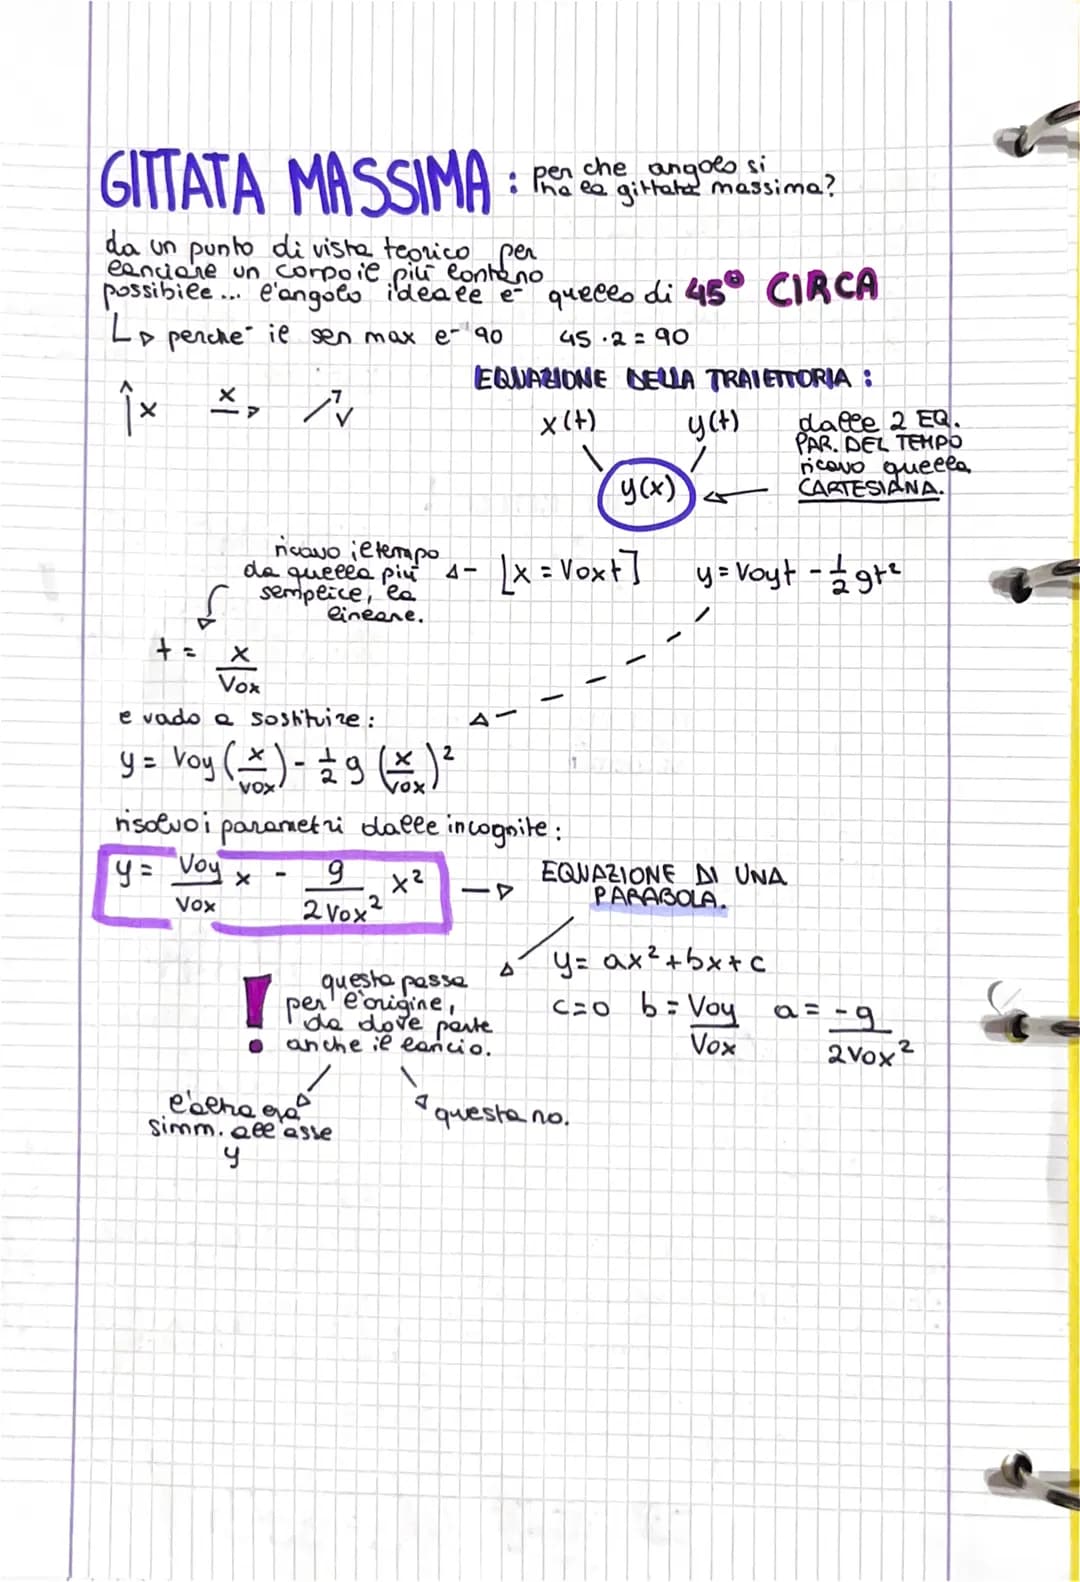 GITTATA MASSIMA : per che angolo si
ha la gittata massima?
da un punto di vista teorico per
lanciare un corpo il più lontano
possibile... l'angolo ideale è quello di 45° CIRCA
↳ perché il sen max è 90 45 · 2 = 90
EQUAZIONE DELLA TRAIETTORIA :
↑x x→ ↗v
x(t) y(t)
dalle 2 EQ.
PAR. DEL TEMPO
ricavo quella
CARTESIANA.
y(x) ←
ricavo il tempo
da quella più
semplice, la
lineare.
[x = Voxt] y = Voyt - 1/2 gt²
t = x/Vox
e vado a sostituire :
y = Voy (x/vox) - 1/2 g (x/vox)²
risolvo i parametri dalle incognite :
y = Voy/Vox x - g/2Vox² x² → EQUAZIONE DI UNA
PARABOLA.
y = ax² + bx + c
c=0 b = Voy/Vox a = -g/2Vox²
! questa passa
per l'origine,
da dove parte
anche il lancio.
l'altra era
simm. all'asse
y
questa no.